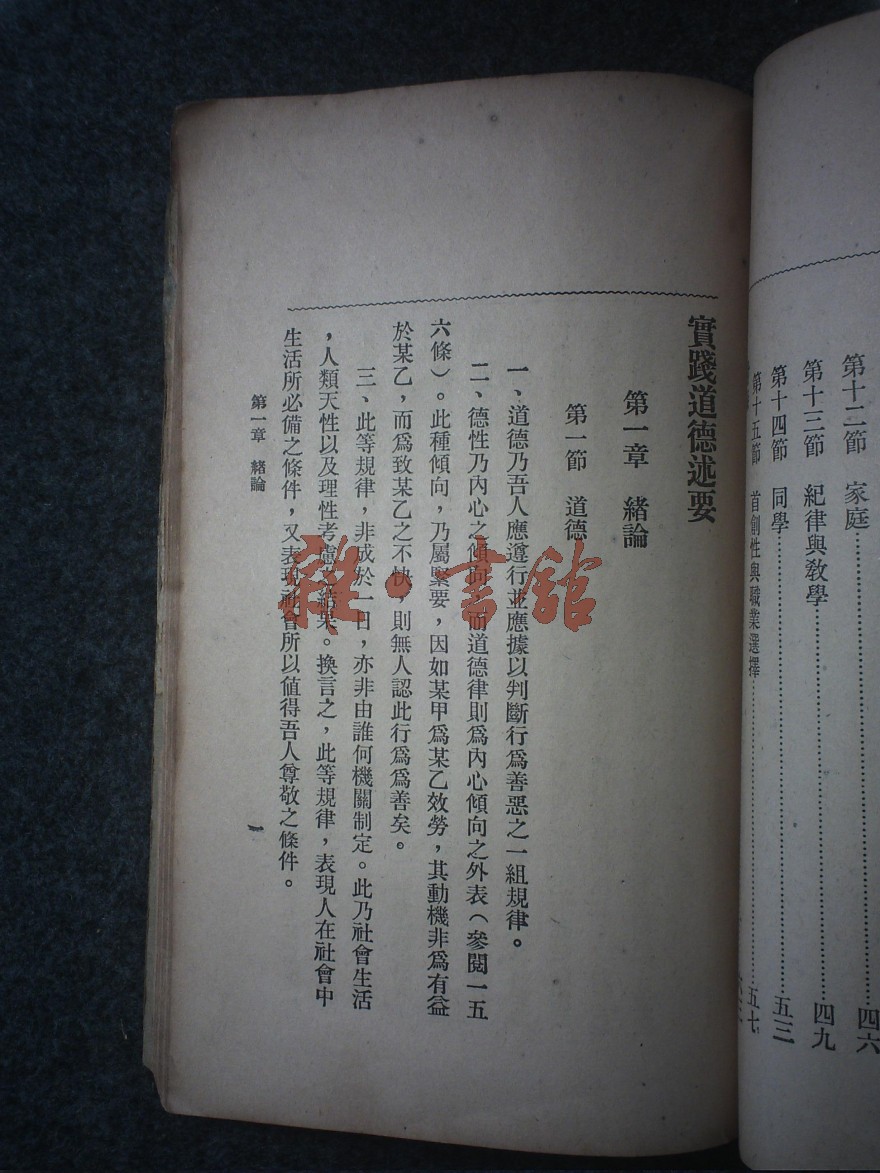 第十二節　家庭……四六
第十三節　紀律與教學……四九
第十四節　同學……五三
第十五節　首創性與職業選擇……五七
實踐道德述要
第一章　緒論
第一節　道德
一、道德乃吾人應遵行並應據以判斷行為善惡之一組規律。
二、德性乃內心之傾向，而道德律則爲內心傾向之外表（參閱一五
六條）。此種傾向，乃屬緊要，因如某甲爲某乙效勞，其動機非爲有益
於某乙，而爲致某乙之不快，則無人認此行爲爲善矣。
三、此等規律，非成於一日，亦非由誰何機關制定。此乃社會生活
，人類天性以及理性考慮之結果。換言之，此等規律，表現人在社會中
生活所必備之條件，又表現社會所以値得吾人尊敬之條件。
第一章　緒論
一
雜·書館